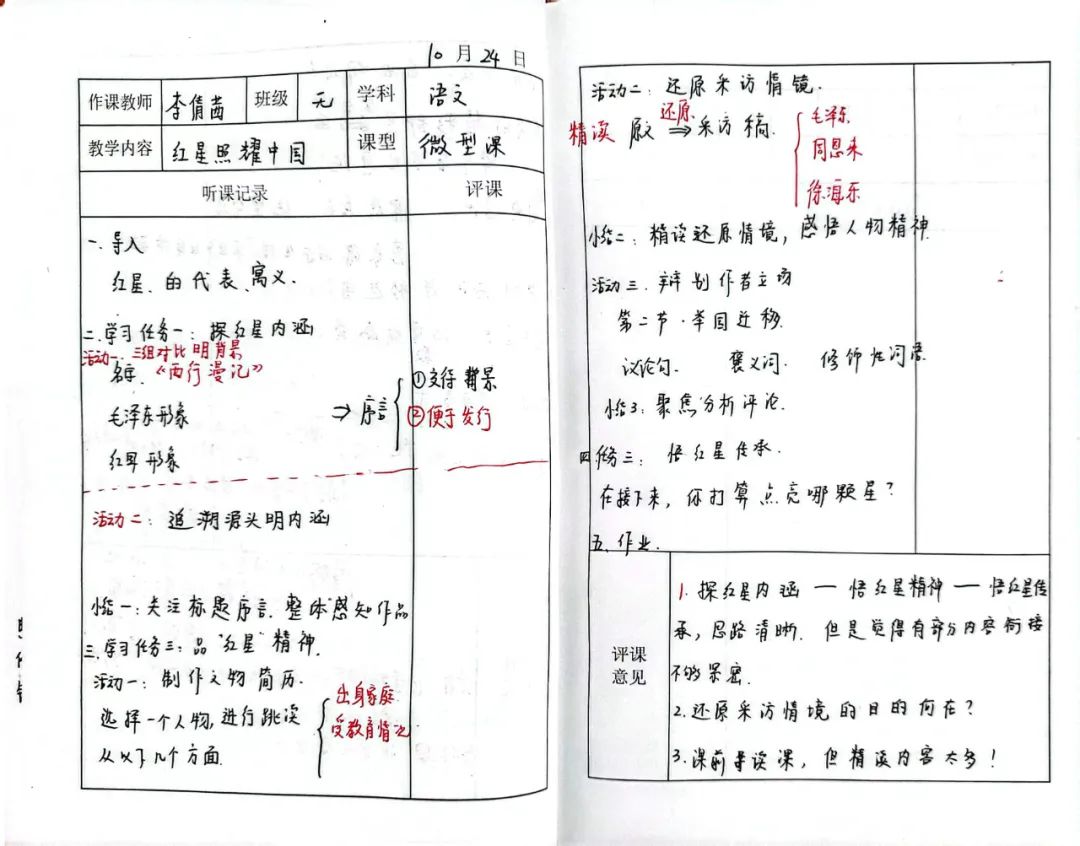 10月24日
作课教师 李倩茜 班级 无 学科 语文
教学内容 红星照耀中国 课型 微型课
听课记录 评课
一、导入
红星、的代表、寓义.
二、学习任务一：探红星内涵
活动一、三组对比明背景
名字、《西行漫记》
毛泽东形象 ⇒ 序言
红军形象
①文体背景
②便于发行
活动二：追溯源头明内涵
小结一：关注标题序言、整体感知作品
三、学习任务二：品"红星"精神.
活动一：制作人物简历.
选择一个人物,进行跳读
从以下几个方面.
出身家庭
受教育情况
活动二：还原采访情镜.
精读 原文 还原⇒ 采访稿.
毛泽东
周恩来
徐海东
小结二：精读还原情境，感悟人物精神.
活动三：辩别作者立场
第二节·举国迁移.
议论句. 褒义词. 修饰性词语.
小结3：聚焦分析评论.
四、任务三：悟红星传承.
在接下来，你打算点亮哪颗星？
五、作业.
评课意见
1. 探红星内涵 — 悟红星精神 — 悟红星传
承，思路清晰. 但是觉得有部分内容衔接
不够紧密.
2. 还原采访情境的目的何在？
3. 课前导读课，但精读内容太多！